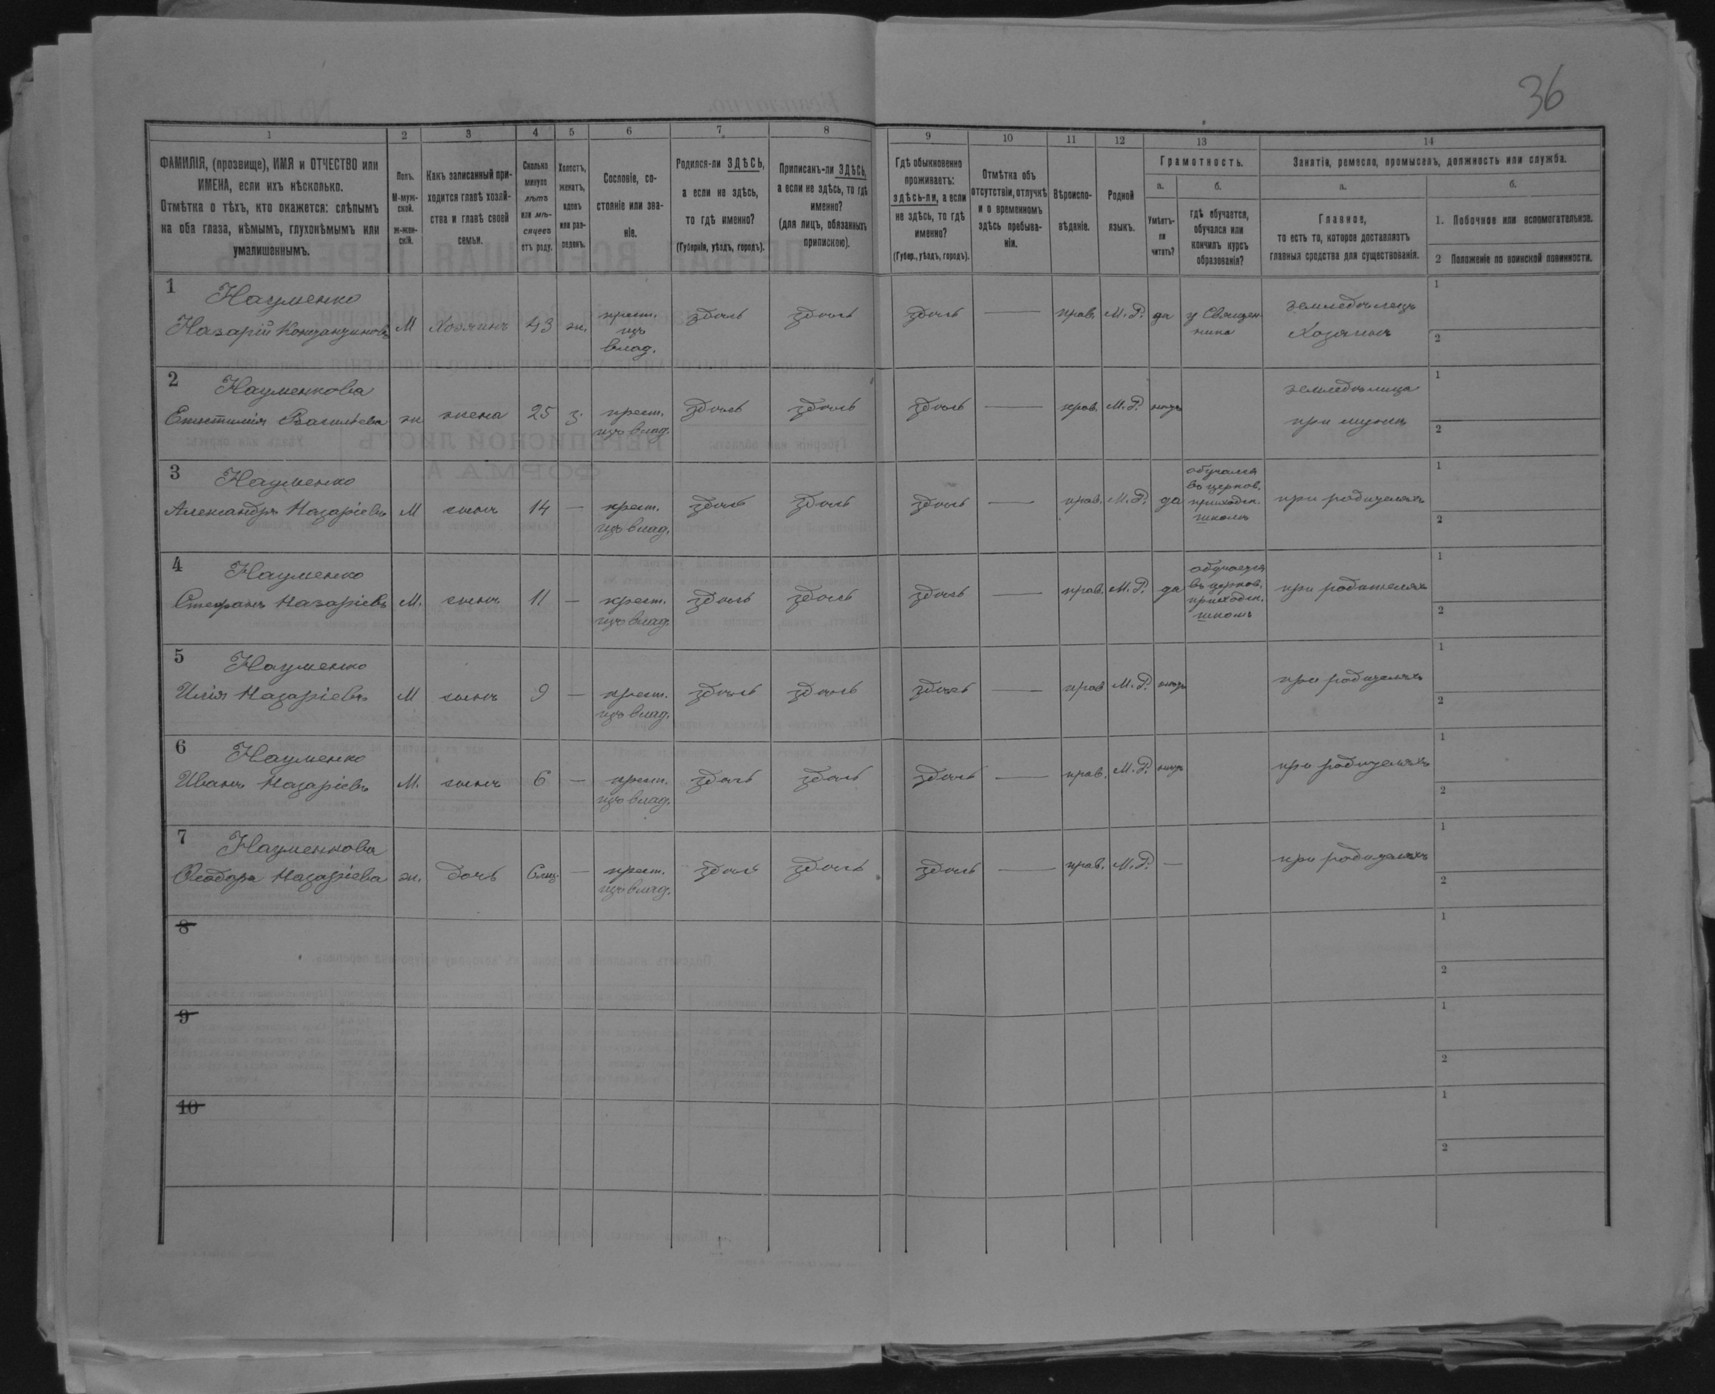 36
1 2 3 4 5 6 7 8 9 10 11 12 13 14
ФАМИЛІЯ, (прозвище), ИМЯ и ОТЧЕСТВО или
ИМЕНА, если ихъ нѣсколько.
Отмѣтка о тѣхъ, кто окажется: слѣпымъ
на оба глаза, нѣмымъ, глухонѣмымъ или
умалишеннымъ.
Полъ.
М-муж-
ской.
ж-жен-
скій.
Какъ записанный при-
ходится главѣ хозяй-
ства и главѣ своей
семьи.
Сколько
минуло
лѣтъ
или мѣ-
сяцевъ
отъ роду.
Холостъ,
женатъ,
вдовъ
или раз-
веденъ.
Сословіе, со-
стояніе или зва-
ніе.
Родился-ли ЗДѢСЬ,
а если не здѣсь,
то гдѣ именно?
(Губернія, уѣздъ, городъ).
Приписанъ-ли ЗДѢСЬ,
а если не здѣсь, то гдѣ
именно?
(для лицъ, обязанныхъ
припискою).
Гдѣ обыкновенно
проживаетъ:
здѣсь-ли, а если
не здѣсь, то гдѣ
именно?
(Губер., уѣздъ, городъ).
Отмѣтка объ
отсутствіи, отлучкѣ
и о временномъ
здѣсь пребыва-
ніи.
Вѣроиспо-
вѣданіе.
Родной
языкъ.
Грамотность.
а.
Умѣетъ-
ли
читать?
б.
гдѣ обучается,
обучался или
кончилъ курсъ
образованія?
Занятія, ремесло, промыселъ, должность или служба.
а.
Главное,
то есть то, которое доставляетъ
главныя средства для существованія.
б.
1. Побочное или вспомогательное.
2 Положеніе по воинской повинности.
1 Науменко
Назарій Константиновъ М Хозяинъ 43 ж. крест. изъ влад. здѣсь здѣсь здѣсь прав. М.Р. да у Священ- ника земледѣлецъ Хозяинъ 1 2
2 Науменкова
Евистимія Васильева ж жена 25 з. крест. изъ влад. здѣсь здѣсь здѣсь — прав. М.Р. нѣтъ земледѣлица при мужѣ 1 2
3 Науменко
Александръ Назаріевъ М сынъ 14 — крест. изъ влад. здѣсь здѣсь здѣсь — прав. М.Р. да обучался въ церков. приходск. школѣ при родителяхъ 1 2
4 Науменко
Стефанъ Назаріевъ М. сынъ 11 — крест. изъ влад. здѣсь здѣсь здѣсь — прав. М.Р. да обучается въ церков. приходск. школѣ при родителяхъ 1 2
5 Науменко
Илія Назаріевъ М сынъ 9 — крест. изъ влад. здѣсь здѣсь здѣсь — прав М.Р. нѣтъ при родителяхъ 1 2
6 Науменко
Иванъ Назаріевъ М. сынъ 6 — крест. изъ влад. здѣсь здѣсь здѣсь — прав. М.Р. нѣтъ при родителяхъ 1 2
7 Науменкова
Ѳеодора Назаріева ж. дочь 6 мц. — крест. изъ влад. здѣсь здѣсь здѣсь — прав. М.Р. — при родителяхъ 1 2
8 1 2
9 1 2
10 1 2